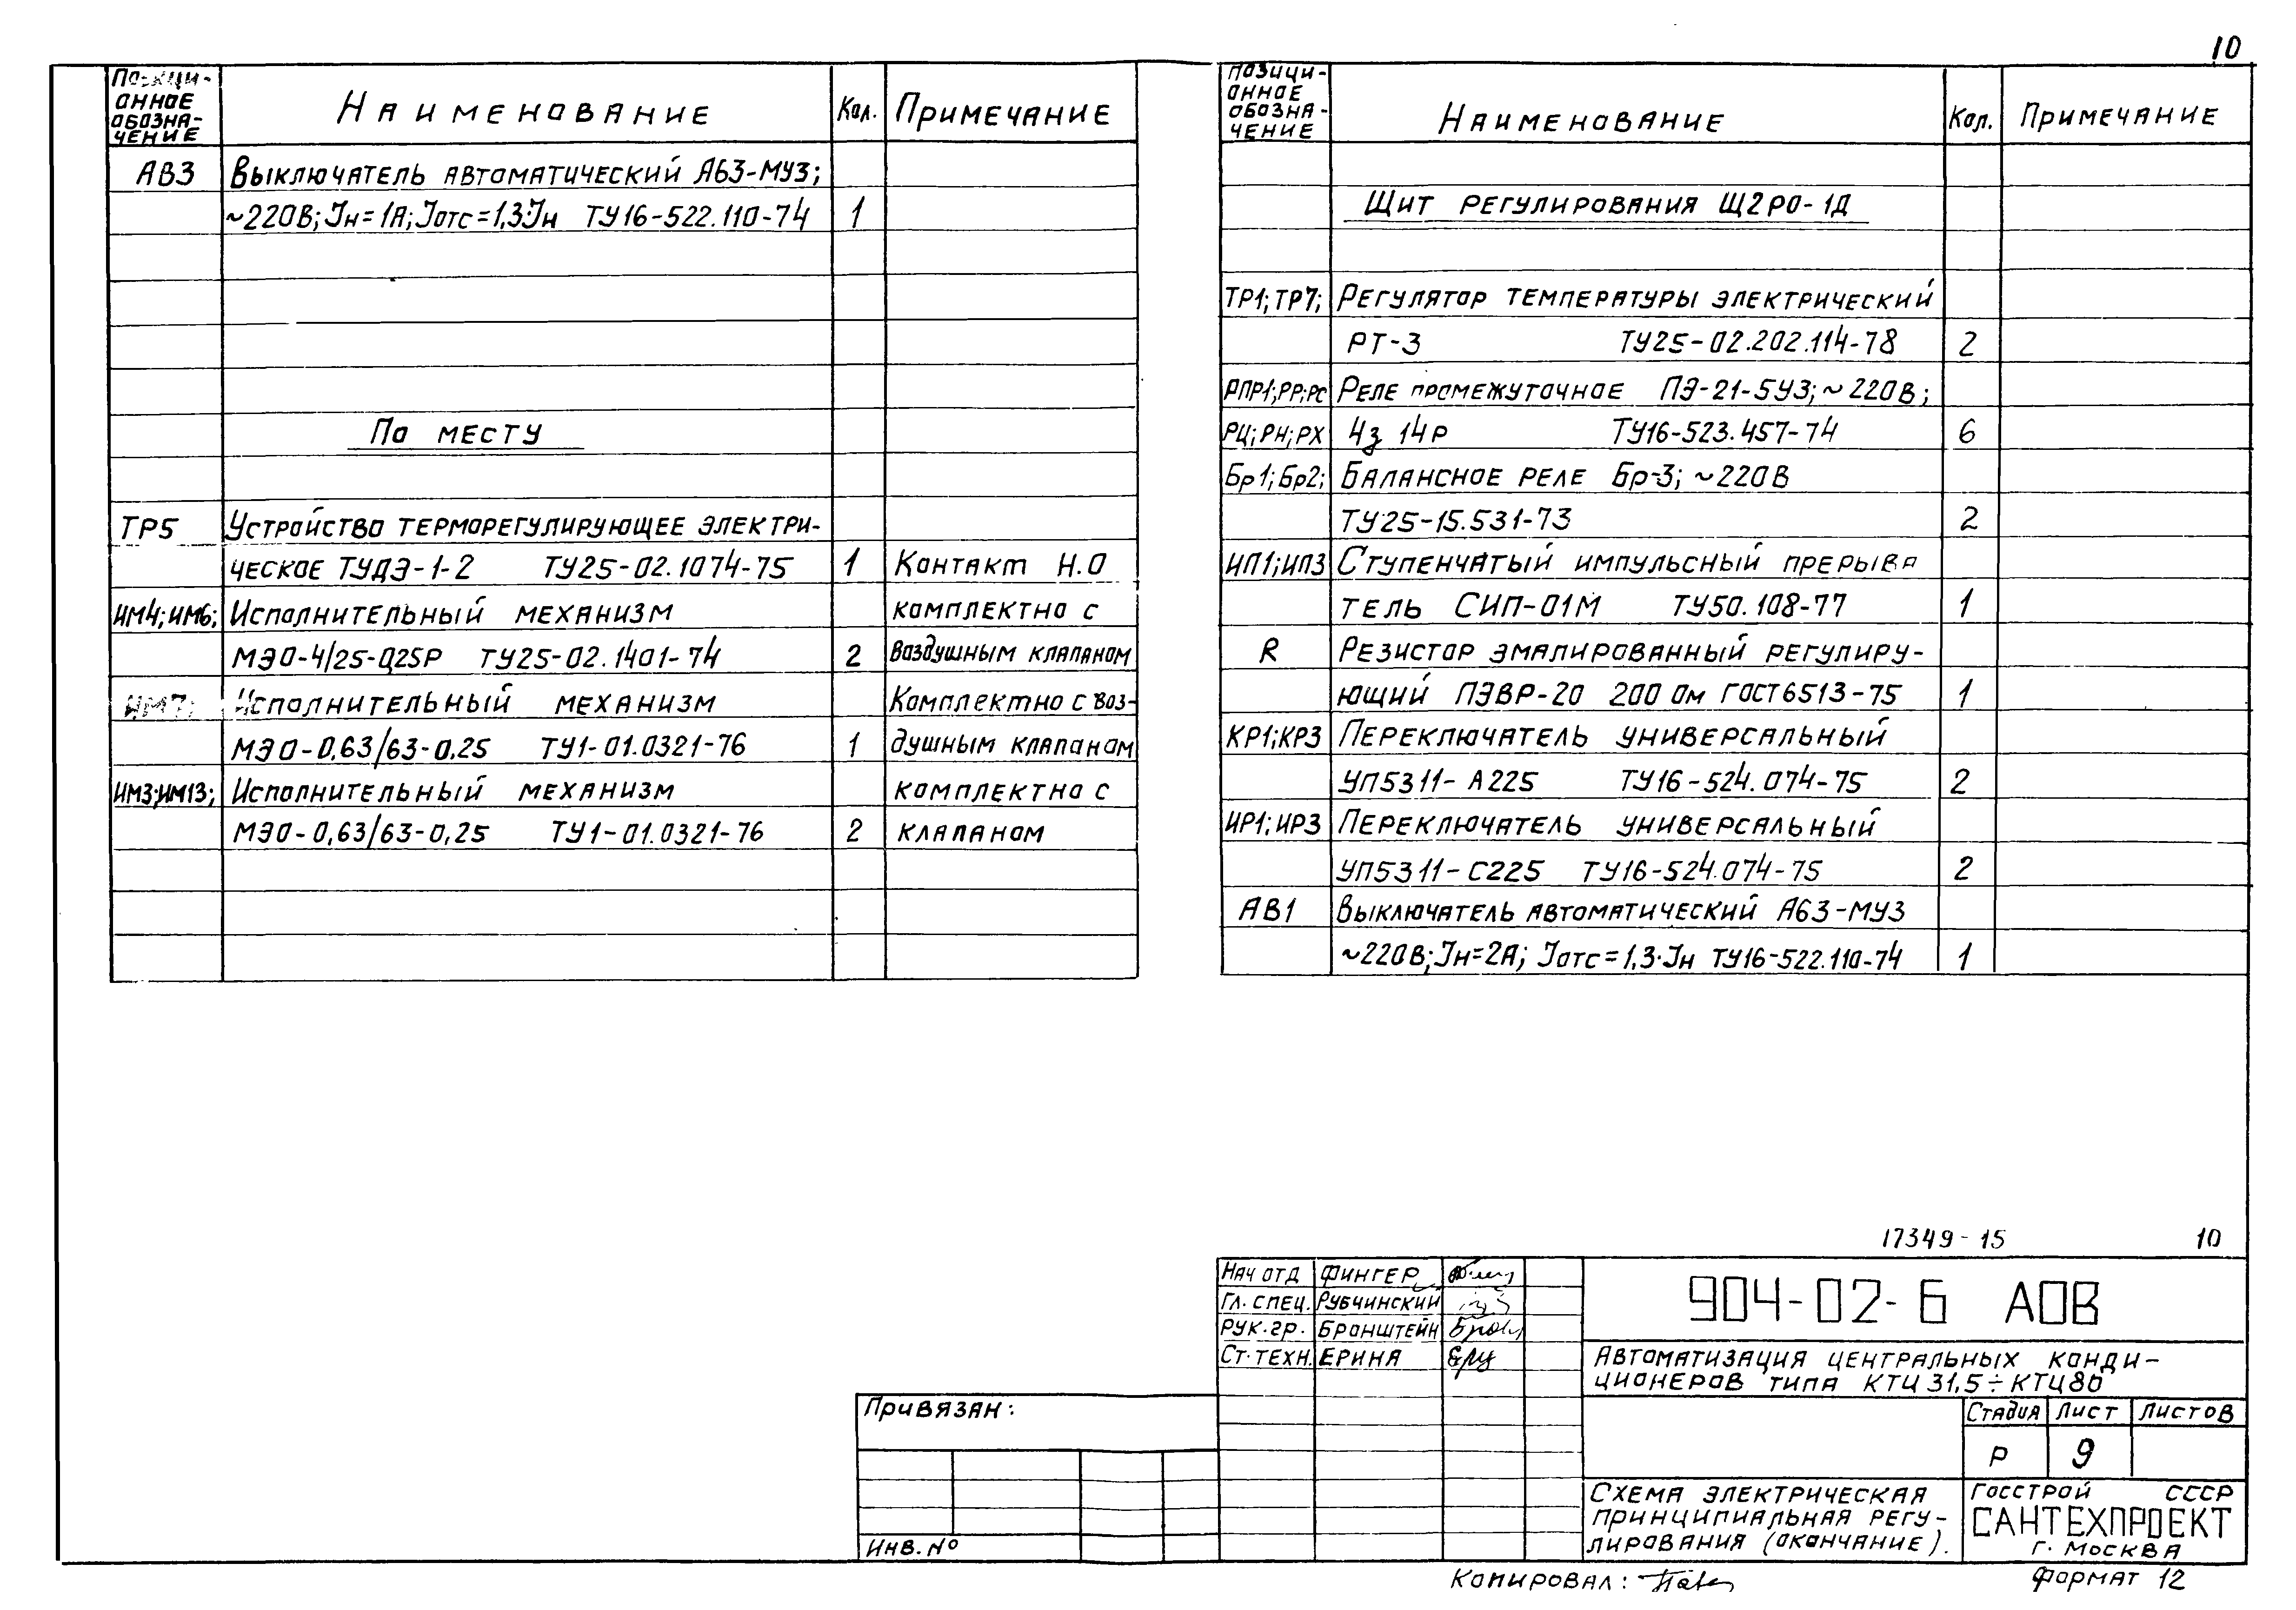 10
Позици-
онное
обозна-
чение
Наименование
Кол.
Примечание
АВ3 Выключатель автоматический А63-МУ3;
~220В; Iн=1А; Iотс=1,3·Iн ТУ16-522.110-74 1
По месту
ТР5 Устройство терморегулирующее электри-
ческое ТУДЭ-1-2 ТУ25-02.1074-75 1 Контакт Н.О
ИМ4; ИМ6; Исполнительный механизм комплектно с
МЭО-4/25-0,25Р ТУ25-02.1401-74 2 воздушным клапаном
ИМ7; Исполнительный механизм Комплектно с воз-
МЭО-0,63/63-0,25 ТУ1-01.0321-76 1 душным клапаном
ИМ3; ИМ13; Исполнительный механизм комплектно с
МЭО-0,63/63-0,25 ТУ1-01.0321-76 2 клапаном
Позици-
онное
обозна-
чение
Наименование
Кол.
Примечание
Щит регулирования Щ2РО-1Д
ТР1; ТР7; Регулятор температуры электрический
РТ-3 ТУ25-02.202.114-78 2
РПР1; РР; РС Реле промежуточное ПЭ-21-5У3; ~220В;
РЦ; РН; РХ 4з 14р ТУ16-523.457-74 6
Бр1; Бр2; Балансное реле Бр-3; ~220В
ТУ25-15.531-73 2
ИП1; ИП3 Ступенчатый импульсный прерыва
тель СИП-01М ТУ50.108-77 1
R Резистор эмалированный регулиру-
ющий ПЭВР-20 200 Ом ГОСТ6513-75 1
КР1; КР3 Переключатель универсальный
УП5311-А225 ТУ16-524.074-75 2
ИР1; ИР3 Переключатель универсальный
УП5311-С225 ТУ16-524.074-75 2
АВ1 Выключатель автоматический А63-МУ3
~220В; Iн=2А; Iотс=1,3·Iн ТУ16-522.110-74 1
17349-15 10
Нач отд Фингер
Гл. спец. Рубчинский
Рук. гр. Бронштейн
Ст. техн. Ерина
904-02-6 АОВ
Автоматизация центральных конди-
ционеров типа КТЦ 31,5÷КТЦ80
Стадия Лист Листов
Р 9
Схема электрическая
принципиальная регу-
лирования (окончание).
Госстрой СССР
САНТЕХПРОЕКТ
г. Москва
Привязан:
Инв. №
Копировал:
Формат 12